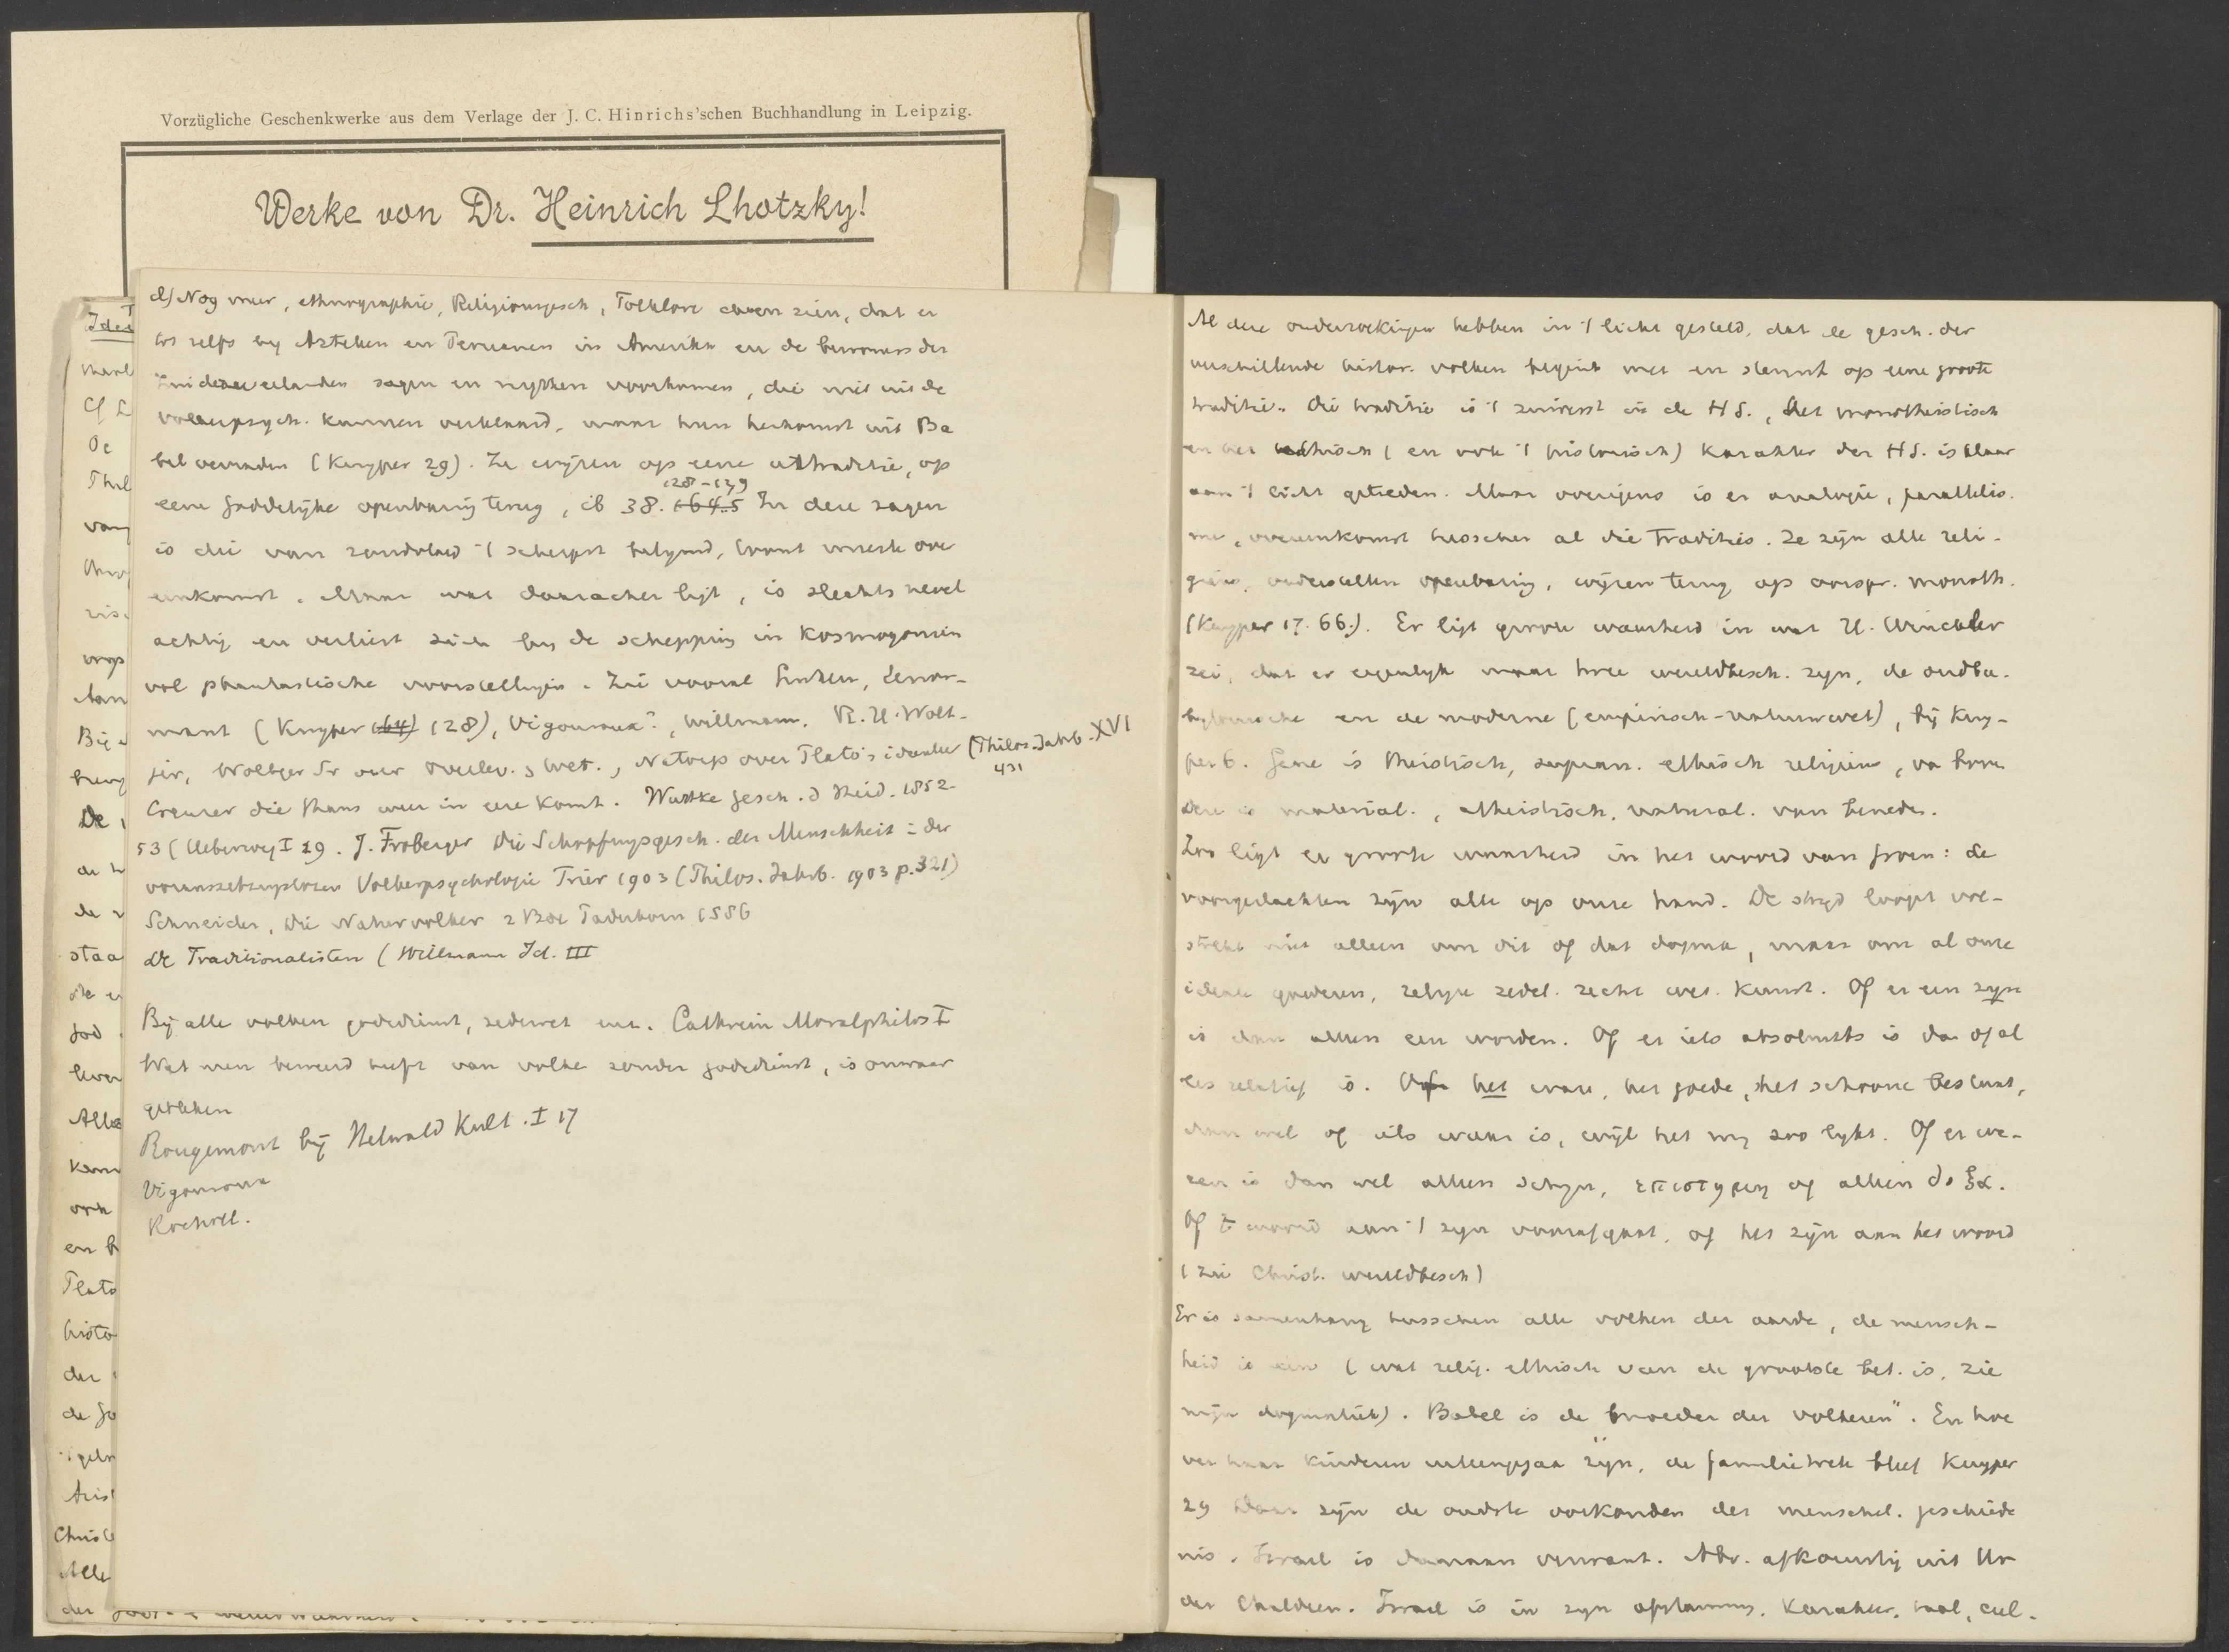 Vorzügliche Geschenkwerke aus dem Verlage der J. C. Hinrichs'schen Buchhandlung in Leipzig.
Werke von Dr. Heinrich Lhotzky!
d) Nog meer, ethnographie, Religionsgesch, Folklore doen zien, dat er
tot zelfs bij Azteken en Peruanen in Amerika en de bewoners der
Zuidzeeeilanden sagen en mythen voorkomen, die niet uit de
volkerpsych. kunnen verklaard, maar hun herkomst uit Ba
bel verraden (Kuyper 29). Ze wijzen op eene uttraditie, op
128-129
eene goddelijke openbaring terug, ib 38. 164.5 In deze sagen
is die van zondvloed 't scherpst belijnd, meeste over
eenkomst. Maar wat daarachter ligt, is slechts nevel
achtig en verliest zich by de schepping in Kosmogonien
vol phantastische voorstellingen. Zie vooral Lüken, Lenor-
mant (Kuyper (64) 128), Vigouroux?, Willmann. R. H. Wolt-
jer, Woltjer Sr over overlev. & wet., Natorp over Plato's ideenleer (Philos. Jahrb. XVI
431
Creuzer die thans weer in eere komt. Wuttke Gesch. d Heid. 1852-
53 (Ueberweg I 29. J. Froberger Die Schopfungsgesch. der Menschheit i. der
voraussetzungslosen Volkerpsychologie Trier 1903 (Philos. Jahrb. 1903 p. 321)
Schneider, Die Naturvolker 2 Bde Paderborn 1886
de Traditionalisten (Willmann Id. III
By alle volken godsdienst, zedewet enz. Cathrein Moralphilos I
Wat men beweerd heeft van volke zonder godsdienst, is onwaar
gebleken
Rougemont bij Helwald Kult. I 17
Vigouroux
Rocholl.
Al deze onderzoekingen hebben in 't licht gesteld, dat de gesch. der
verschillende histor. volken begint met en steunt op eene groote
traditie. Die traditie is 't zuiverst in de H S., Het monotheistisch
en het ethisch (en ook 't historisch) karakter der H S. is klaar
aan 't licht getreden. Maar overigens is er analogie, parallelis.
me, overeenkomst tusschen al die Tradities. Ze zijn alle reli-
gieus, onderstellen openbaring, wijzen terug op oorspr. monoth.
(Kuyper 17. 66.). Er ligt groote waarheid in wat H. Winckler
zei, dat er eigenlijk maar twee wereldbesch. zyn, de oudba-
bylonische en de moderne (empirisch-natuurwet), bij Kuy-
per 6. Gene is theistisch, supran. ethisch religieus, va boven
Deze is material., atheistisch, natural. van beneden.
Zoo ligt er groote waarheid in het woord van Groen: de
voorgeslachten zijn alle op onze hand. De strijd loopt vol-
strekt niet alleen om dit of dat dogma, maar om al onze
ideale goederen, religie zedel. recht wet. kunst. Of er een zijn
is dan alleen een worden. Of er iets absoluuts is dan of al
les relatief is. Of het ware, het goede, het schoone bestaat,
dan wel of iets waar is, wijl het mij zoo lykt. Of er we-
zen is dan wel alleen schyn, επιστημη of alleen δοξα.
Of 't woord aan 't zyn voorafgaat, of het zijn aan het woord
(zie Christ. wereldbesch)
Er is samenhang tusschen alle volken der aarde, de mensch-
heid is één (wat relig. ethisch van de grootste bet. is, zie
mijn dogmatiek). Babel is de "moeder der volkeren". En hoe
ver haar kinderen uiteengegaan zijn, de familietrek bleef Kuyper
29 Daar zijn de oudste oorkonden der menschel. geschiede
nis. Israel is daaraan verwant. Abr. afkomstig uit Ur
der Chaldeen. Israel is in zyn afstamming, karakter, taal, cul-